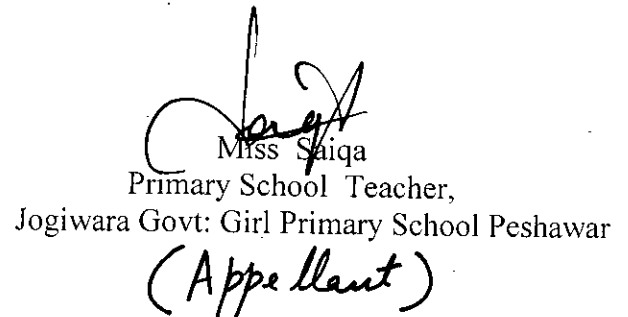 Miss Saiqa
Primary School Teacher,
Jogiwara Govt: Girl Primary School Peshawar
(Appellant)